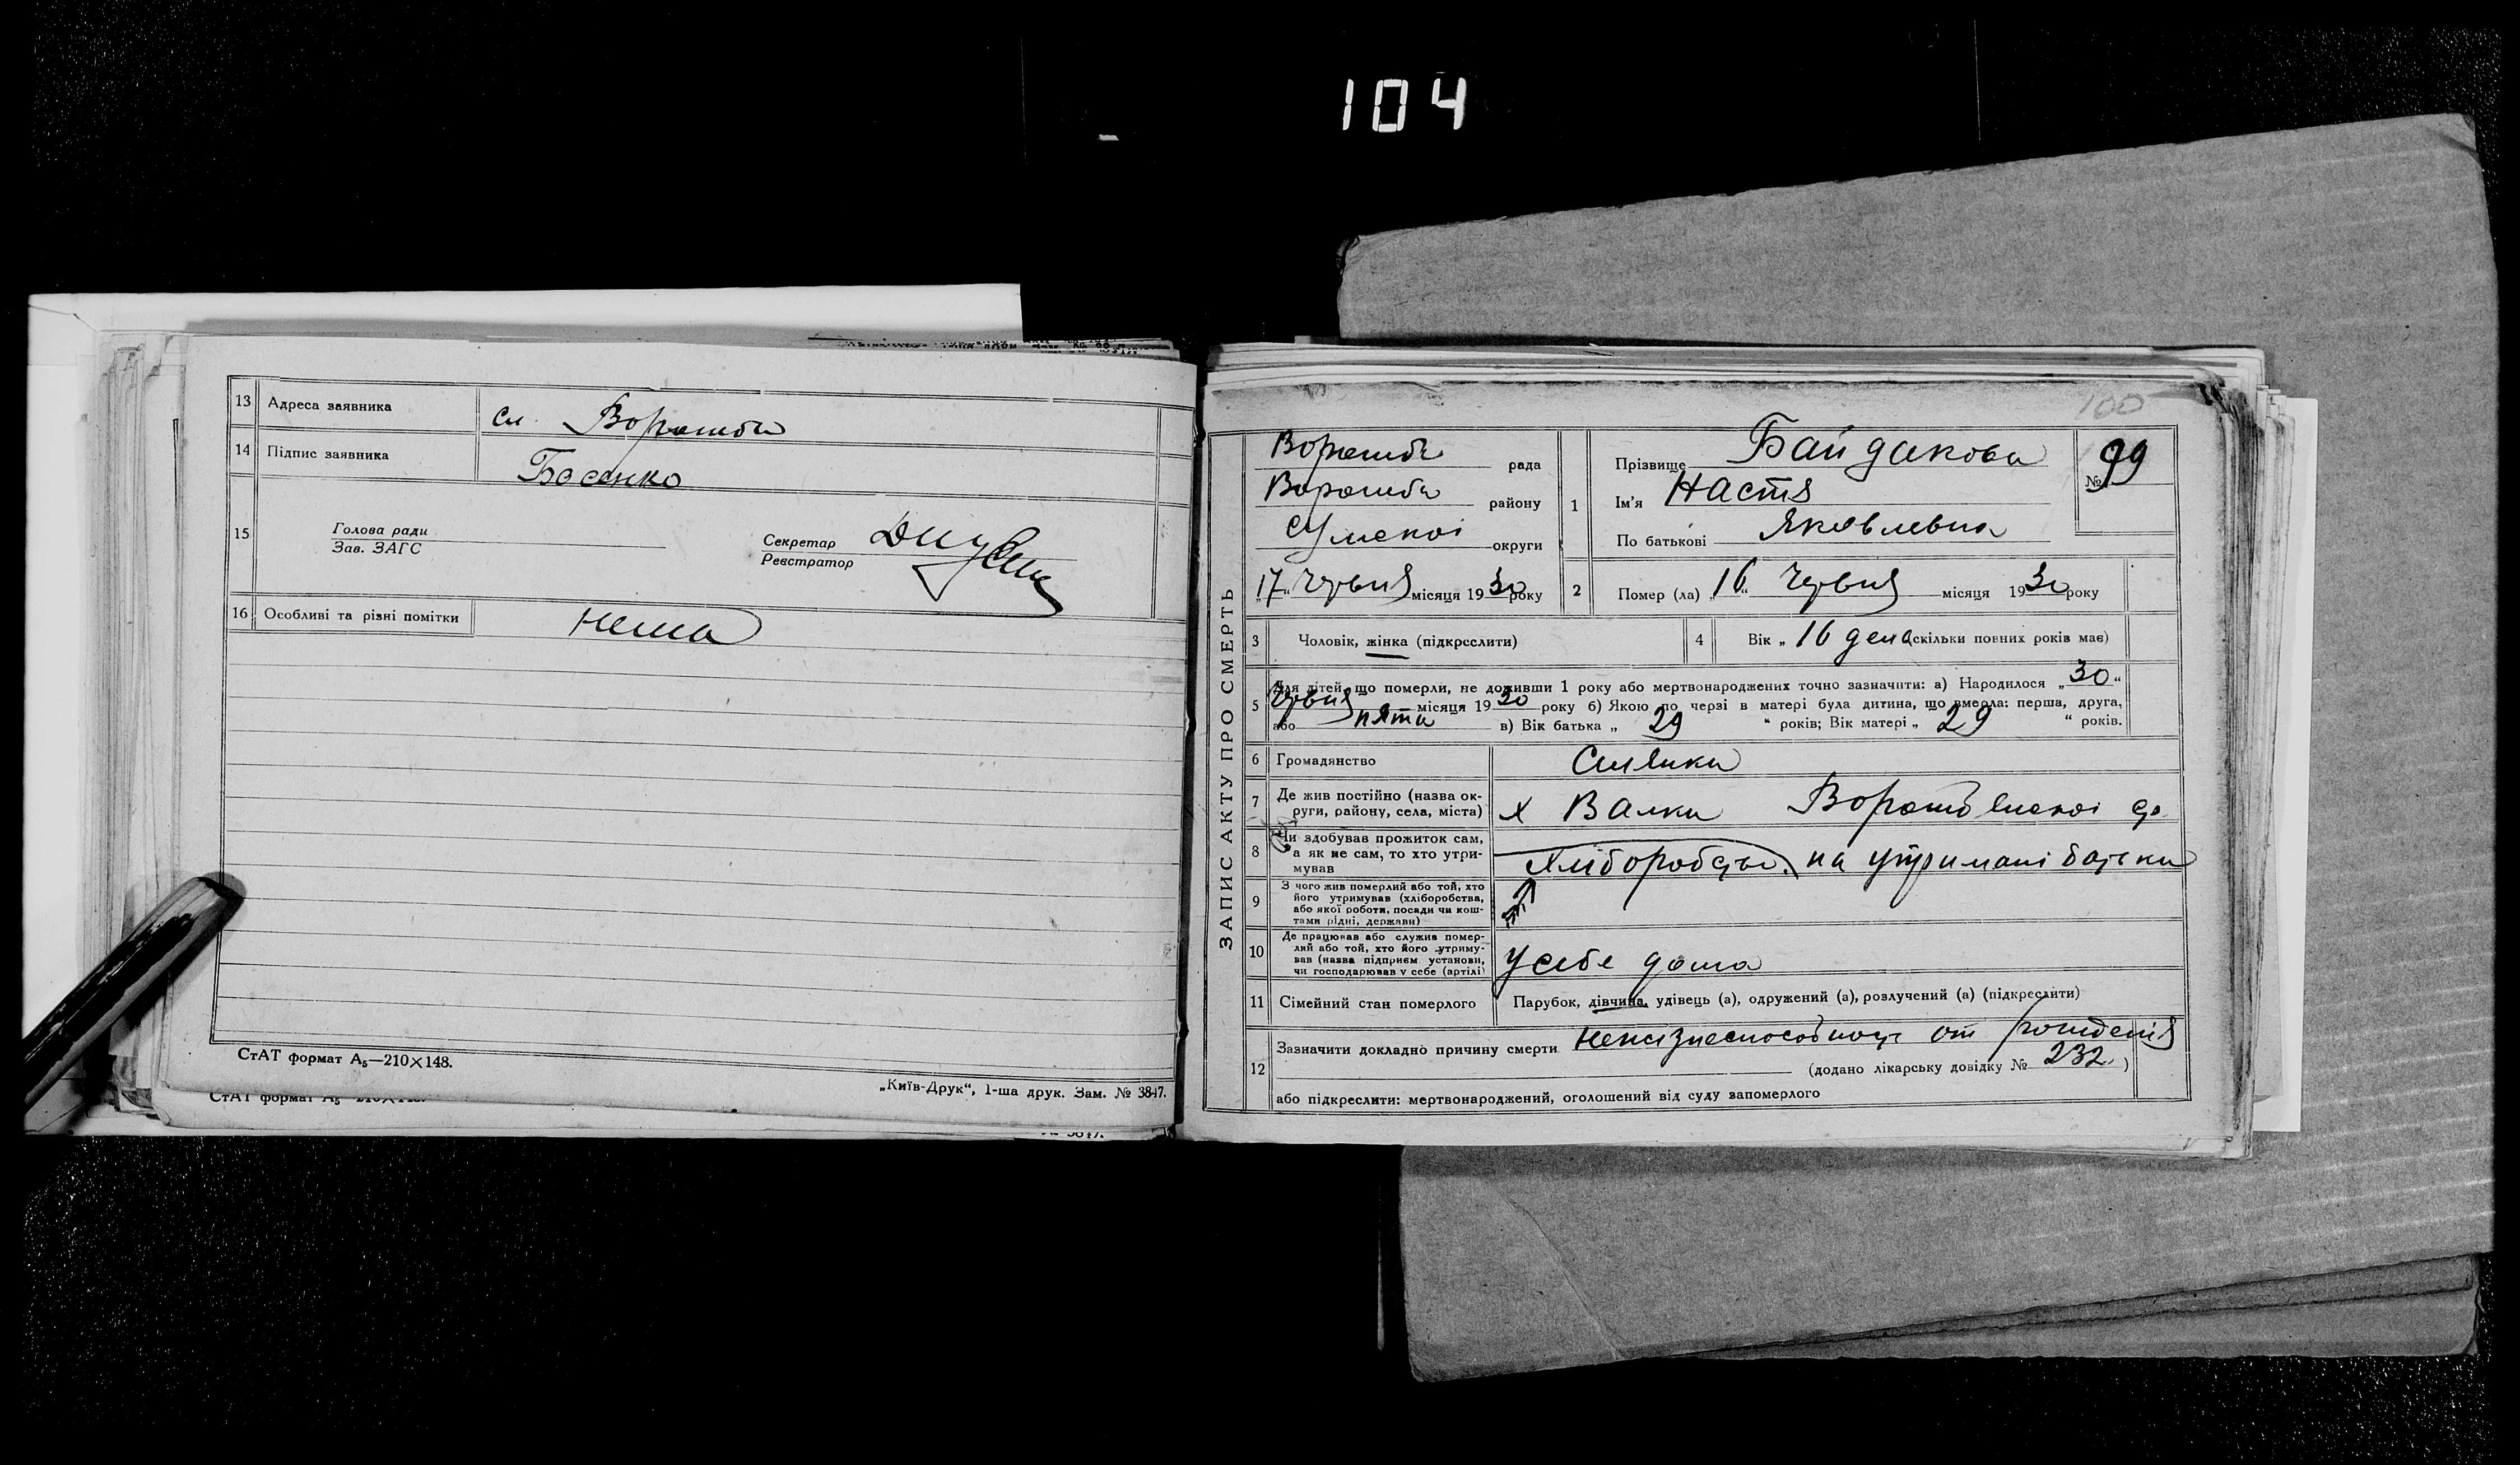 104
13 Адреса заявника сл. Ворожба
14 Підпис заявника Басенко
15 Голова ради
Зав. ЗАГС
Секретар
Реєстратор
16 Особливі та різні помітки Нема
СтАТ формат А₅—210×148.
„Київ-Друк“, 1-ша друк. Зам. № 3847.
СтАТ формат А₅
100
ЗАПИС АКТУ ПРО СМЕРТЬ
Ворожба рада
Ворожба району
Сумскоі округи
„17“ Червня місяця 1930 року
1 Прізвище Байдакова
Ім'я Настя
По батькові Яковлевна
№ 99
2 Помер (ла) „16“ Червня місяця 1930 року
3 Чоловік, жінка (підкреслити)
4 Вік „16 дена скільки повних років має)
5 Для дітей, що померли, не доживши 1 року або мертвонароджених точно зазначити: а) Народилося „30“
Червня місяця 1930 року б) Якою по черзі в матері була дитина, що вмерла: перша, друга,
або пята в) Вік батька „ 29 “ років; Вік матері „ 29 “ років.
6 Громадянство
7 Де жив постійно (назва ок-
руги, району, села, міста) х Валки
8 Чи здобував прожиток сам,
а як не сам, то хто утри-
мував Хліборобство. на утримані батька
9 З чого жив померлий або той, хто
його утримував (хліборобства,
або якої роботи, посади чи кош-
тами рідні, держави)
10 Де працював або служив помер-
лий або той, хто його утриму-
вав (назва підприєм установи,
чи господарював у себе (артілі) У себе дома
11 Сімейний стан померлого Парубок, дівчина, удівець (а), одружений (а), розлучений (а) (підкреслити)
12 Зазначити докладно причину смерти Нежизнеспособность от рождения
(додано лікарську довідку № 232 )
або підкреслити: мертвонароджений, оголошений від суду запомерлого